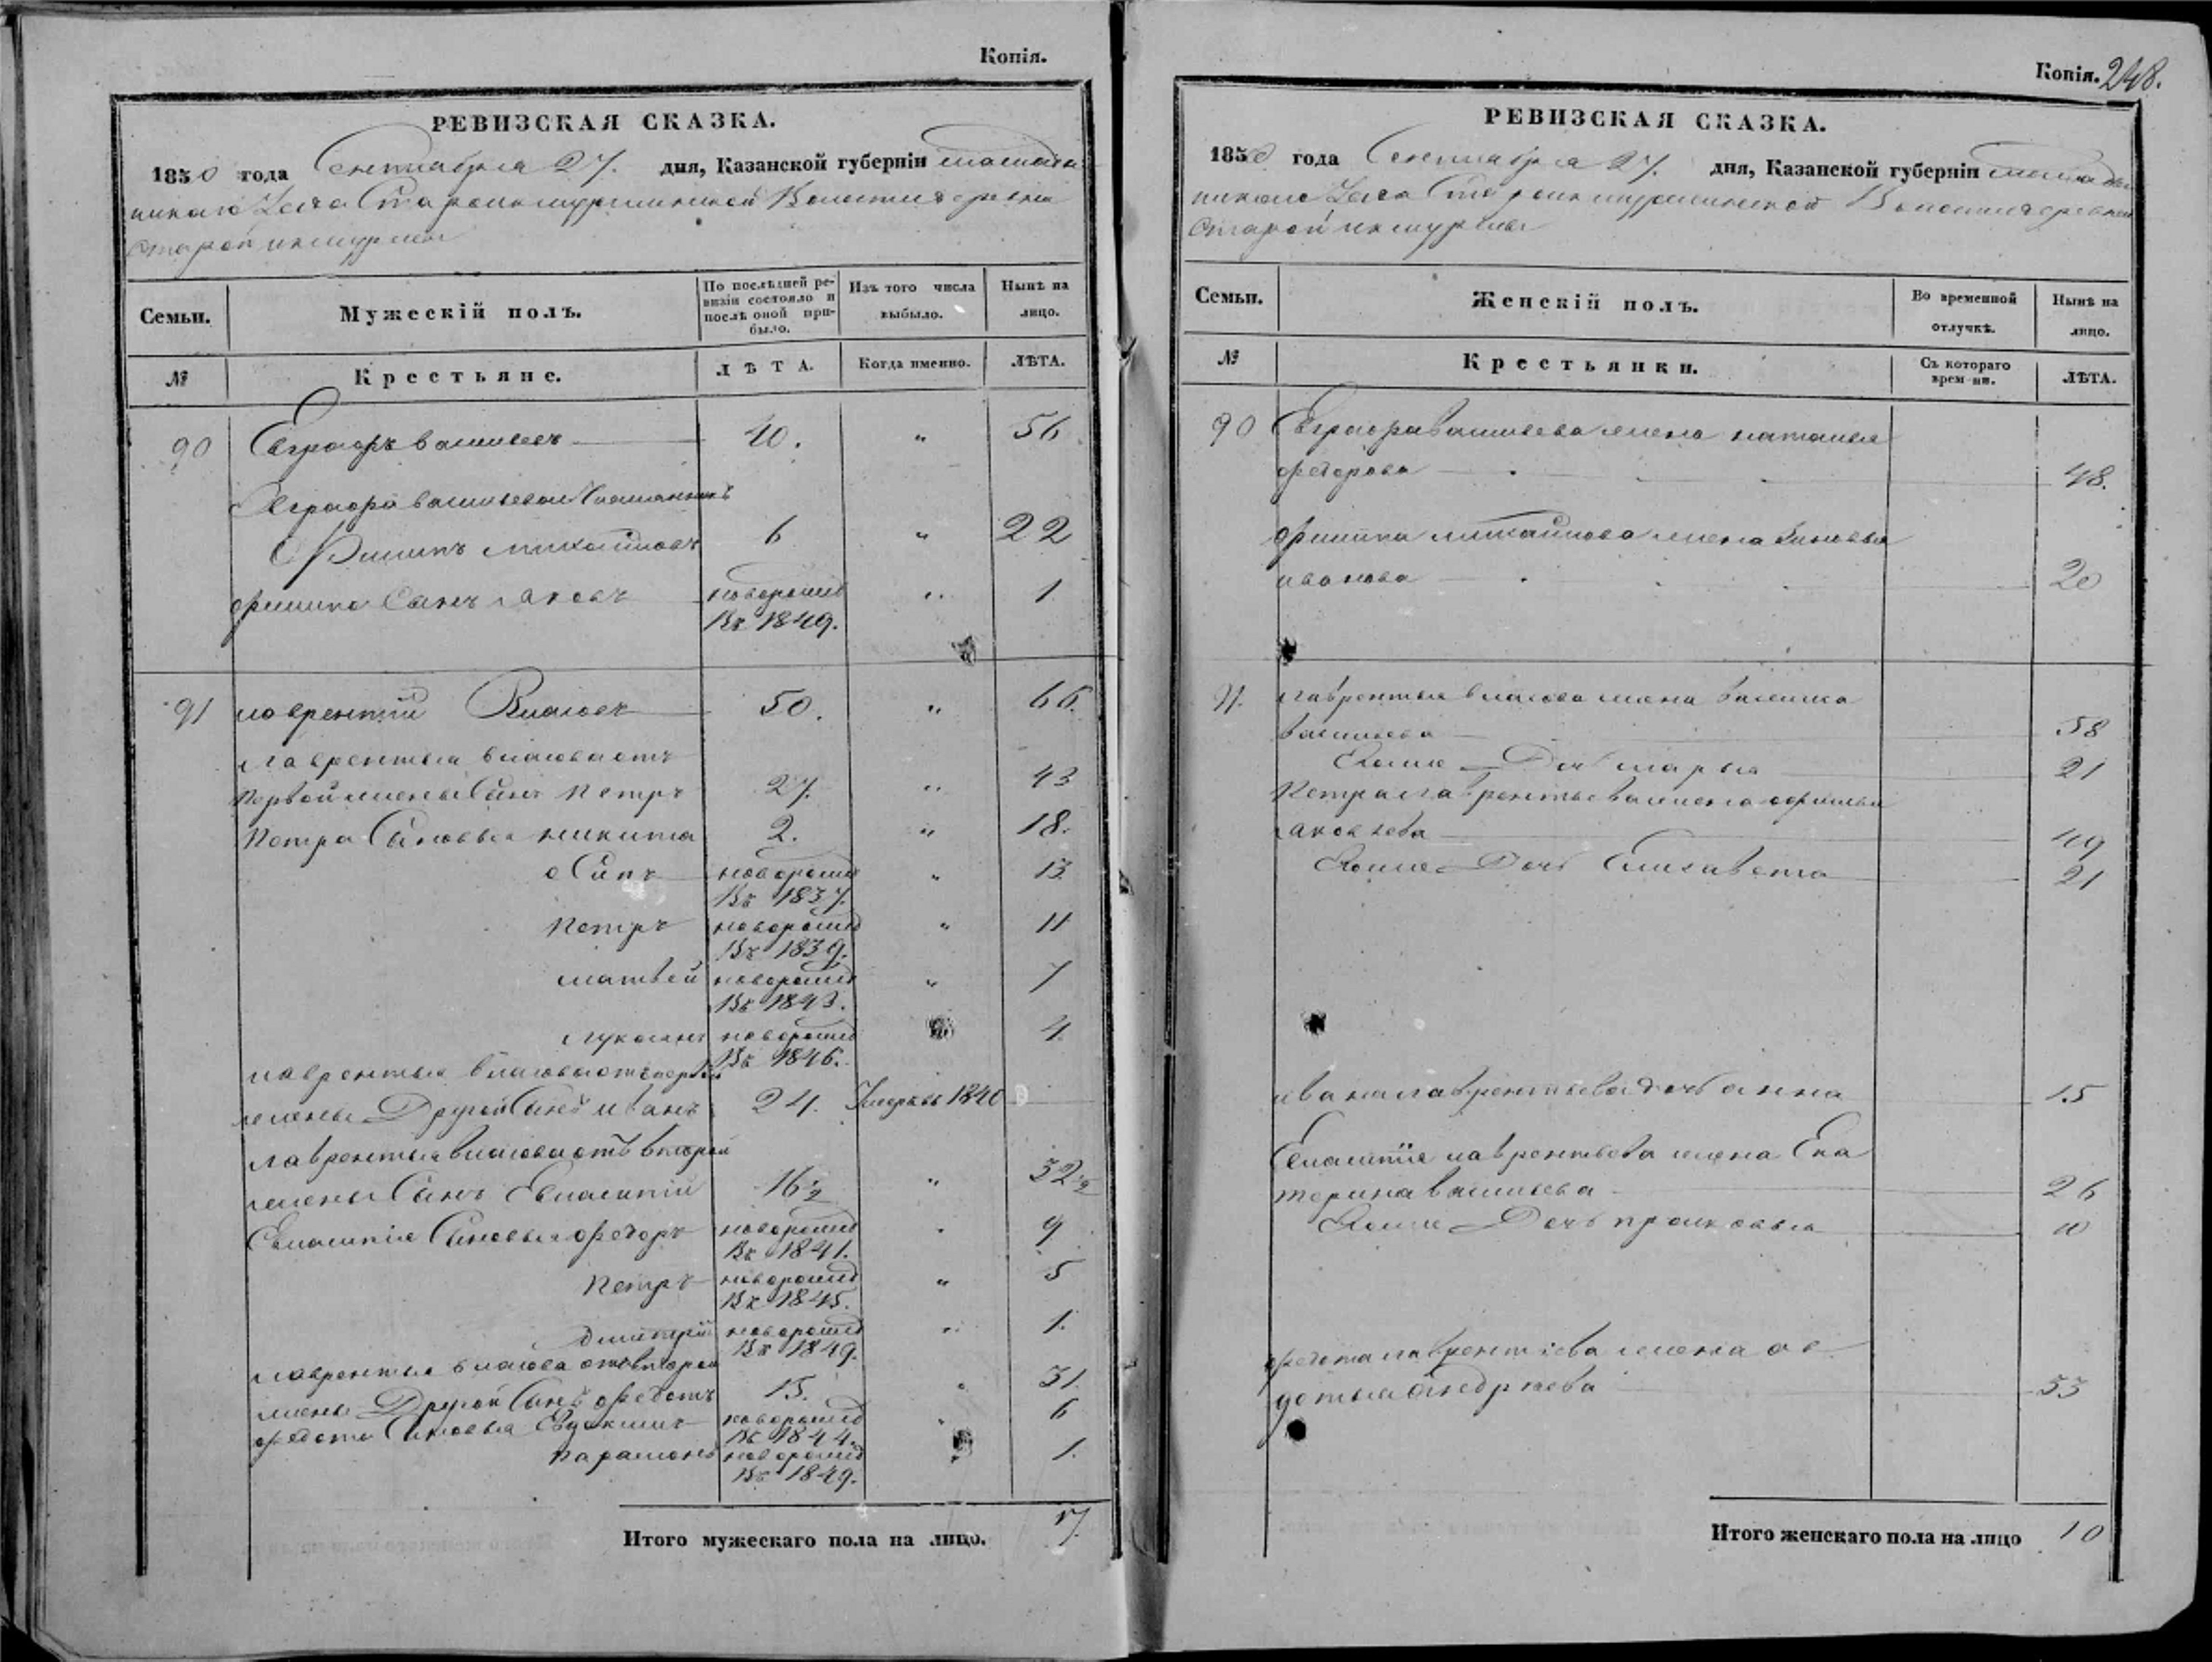 Копія.
РЕВИЗСКАЯ СКАЗКА.
1850 года Сентября 27. дня, Казанской губерніи
Уезда Волости деревни
Старой
Семьи.
Мужескій полъ.
По послѣдней ревизіи состояло и послѣ оной прибыло.
Изъ того числа выбыло.
Нынѣ на лицо.
№
Крестьяне.
ЛѢТА.
Когда именно.
ЛѢТА.
90 Евграфъ васильевъ 40. " 56
Евграфа васильева
Филипъ михайловъ 6 " 22
филипа Сынъ яковъ новорожд " 1
Въ 1849.
91 лаврентій Власовъ 50. " 66.
лаврентья власова отъ
Первой жены Сынъ Петръ 27. " 43
Петра Сыновья никита 2. " 18.
осипъ новорожд " 13
Въ 1837.
Петръ новорожд " 11
Въ 1839.
матвей новорожд " 7
Въ 1843.
лукоянъ новорожд 4.
Въ 1846.
лаврентья власова отъ первой
жены Другой Сынъ иванъ 24. Умеръ въ 1840
лаврентья власова отъ второй
жены Сынъ Евлампій 16½ " 32½
Евлампія Сыновья федоръ новорожд " 9
Въ 1841.
Петръ новорожд " 5
Въ 1845.
дмитрій новорожд " 1.
Въ 1849.
лаврентья власова отъ второй
жены Другой Сынъ федотъ 15. " 31.
федота Сыновья Евдокимъ новорожд " 6
Въ 1844.
парамонъ новорожд 1.
Въ 1849.
Итого мужескаго пола на лицо. 17.
Копія. 248.
РЕВИЗСКАЯ СКАЗКА.
1850 года Сентября 27. дня, Казанской губерніи
Уезда Волости деревни
Старой
Семьи.
Женскій полъ.
Во временной отлучкѣ.
Нынѣ на лицо.
№
Крестьянки.
Съ котораго времени.
ЛѢТА.
90 Евграфа васильева жена наталья
федорова 48.
филипа михайлова жена зиновья
иванова 20
91. лаврентья власова жена василиса
васильева 58
Ево же Дочь марья 21
Петра лаврентьева жена офимья
яковлева 49
Ево же Дочь Елизавета 21
ивана лаврентьева дочь анна 15
Евлампія лаврентьева жена Ека
терина васильева 26
Ево же Дочь прасковья 10
федота лаврентьева жена ов
дотья андреева 33
Итого женскаго пола на лицо 10